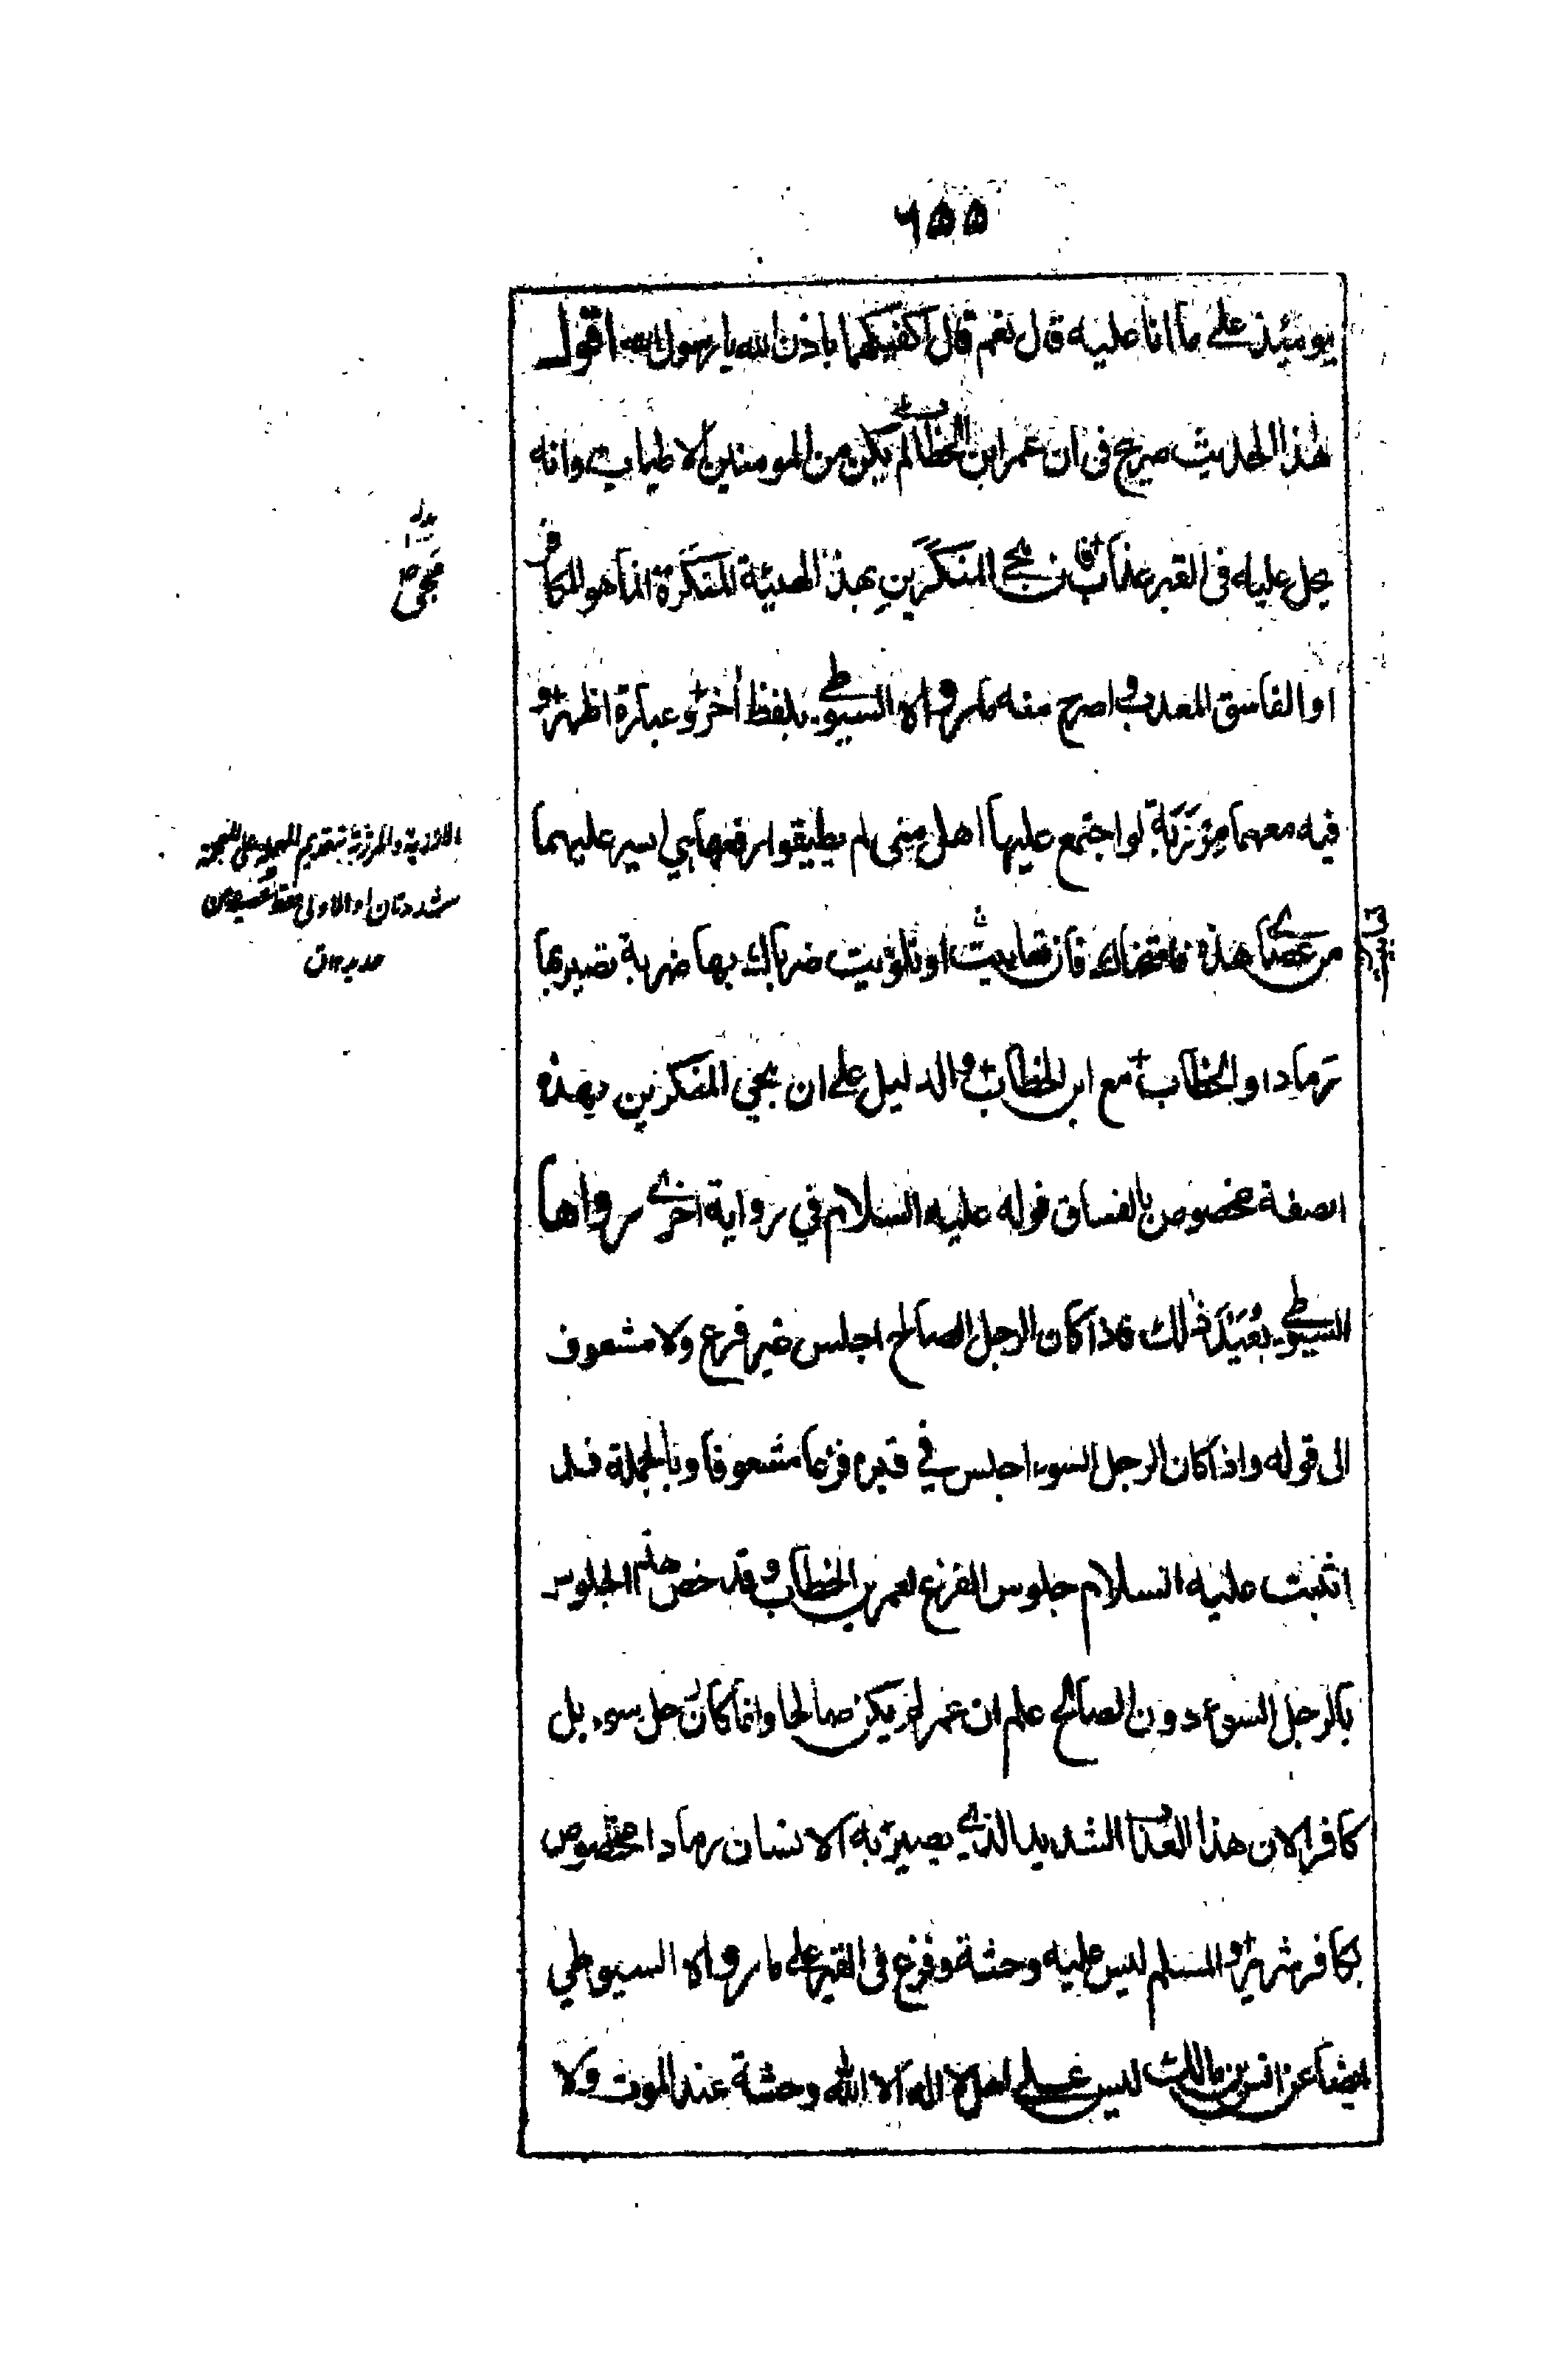 ٦٥٥
يومئذ على ما انا عليه قال نعم قال اكفيكهما باذن الله يا رسول الله اقول
هذا الحديث صريح فى ان عمر ابن الخطاب لم يكن من المومنين الاطياب وانه
يحل عليه فى القبر عذاب فان مجئ المنكرين بهذه الهيئة المنكرة انما هو للكافر
او الفاسق المعذب واصرح منه ما رواه السيوطى بلفظ أخر وعبارة اظهر و
فيه معهما مرزبة لو اجتمع عليها اهل منى لم يطيقوا رفعها هي ايسر عليهما
من عصاى هذه فامتحناك فان تعاييت او تلويت ضرباك بها ضربة تصير بها
رمادا والخطاب مع ابن الخطاب والدليل على ان مجى المنكرين بهذه
الصفة مخصوص بالفساق قوله عليه السلام في رواية اخرى رواها
السيوطى بعيد ذلك فاذا كان الرجل الصالح اجلس غير فزع ولا مشعوف
الى قوله واذا كان الرجل السوء اجلس في قبره فزعا مشعوفا وبالجملة فلما
اثبت عليه السلام جلوس الفزع لعمر بن الخطاب وقد خص هذا الجلوس
بالرجل السوء دون الصالح علم ان عمر لم يكن صالحا وانما كان رجل سوء بل
كافرا لان هذا العذاب الشديد الذي يصير به الانسان رمادا مخصوص
بكافر شرير والمسلم ليس عليه وحشة وفزع فى القبر على ما رواه السيوطي
ايضا عن انس بن مالك ليس على اهل لا اله الا الله وحشة عند الموت ولا
مجئ
الارزبة والمرزبة بتقديم المهملة على المعجمة
مشددتان او الاولى فقط عصية من
حديد ق